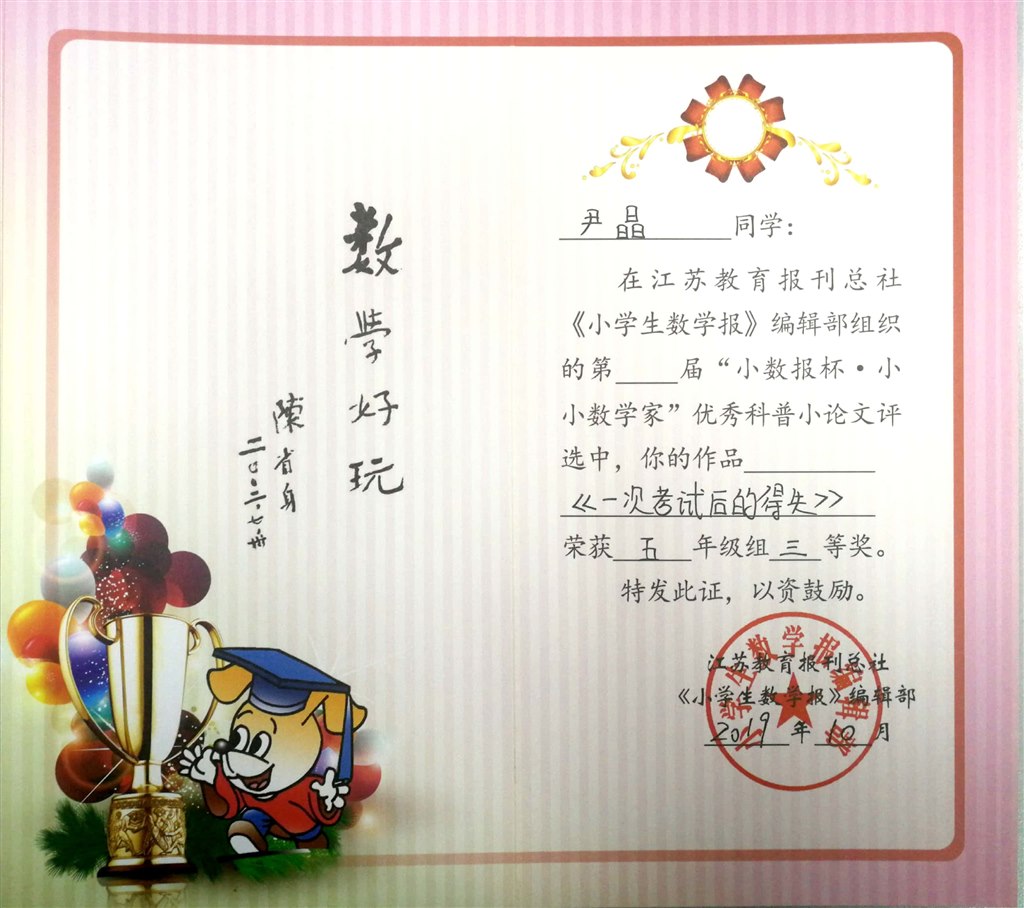 数学好玩
陳省身
二〇〇二·七·卅
尹晶同学：
在江苏教育报刊总社
《小学生数学报》编辑部组织
的第____届“小数报杯·小
小数学家”优秀科普小论文评
选中，你的作品
《一次考试后的得失》
荣获五年级组三等奖。
特发此证，以资鼓励。
江苏教育报刊总社
《小学生数学报》编辑部
2019年10月
小学生数学报编辑部